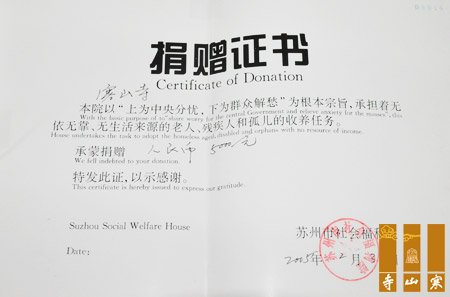 捐赠证书
Certificate of Donation
寒山寺
本院以“上为中央分忧，下为群众解愁”为根本宗旨，承担着无
With the basic purpose of to "share worry for the central Government and relieve anxiety for the masses", this
依无靠、无生活来源的老人、残疾人和孤儿的收养任务。
House undertakes the task to adopt the homeless aged, disabled and orphans with no resource of income.
承蒙捐赠 人民币 5000元
We fell indebted to your donation.
特发此证，以示感谢。
This certificate is hereby issued to express our gratitude.
Suzhou Social Welfare House
苏州市社会福利
Date:
2005年 2 月
寒山寺